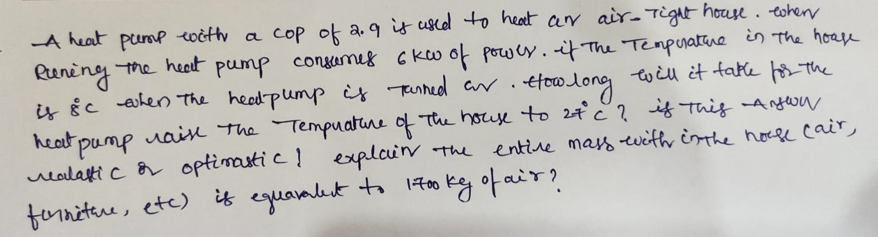 A heat pump with a COP of 2.9 is used to heat an air-Tight house. when
Runing the heat pump consumes 6 kw of power. if The Tempurature in The house
is 8°c when The heat pump is Turned on. How long will it take for The
heat pump raise The Tempuature of The house to 27°c? is This Answer
realastic or optimastic! explain The entire mass with in the house (air,
furniture, etc) is equavalent to 1700 kg of air?